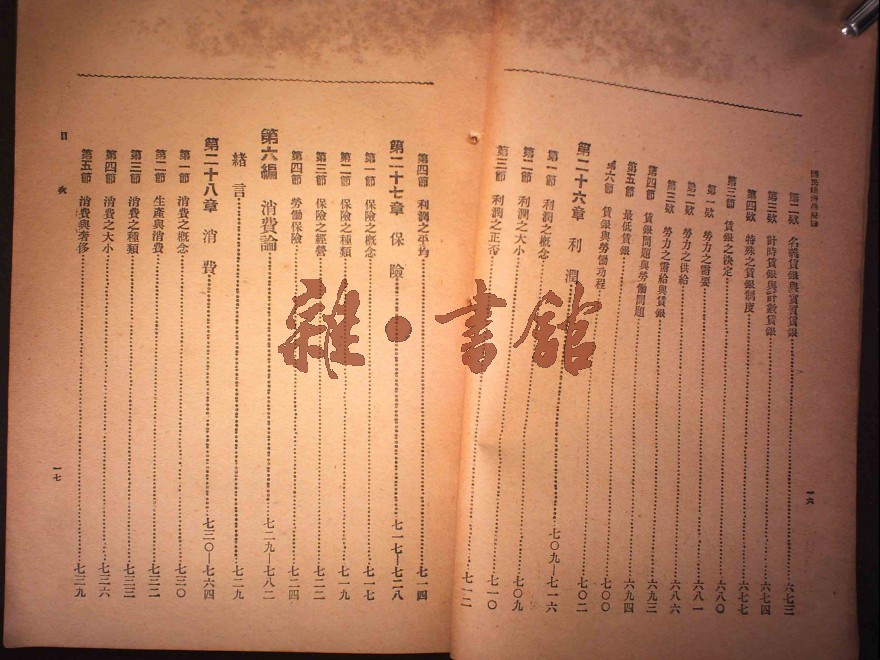 第二欵 名義賃銀與實質賃銀……六七三
第三欵 計時賃銀與計數賃銀……六七四
第四欵 特殊之賃銀制度……六七七
第三節 賃銀之決定……六八〇
第一欵 勞力之需要……六八一
第二欵 勞力之供給……六八六
第三欵 勞力之需給與賃銀……六九三
第四節 賃銀問題與勞働問題……六九四
第五節 最低賃銀……七〇〇
第六節 賃銀與勞働功程……七〇二
第二十六章 利 潤……七〇九—七一六
第一節 利潤之概念……七〇九
第二節 利潤之大小……七一〇
第三節 利潤之正否……七一二
一六
第四節 利潤之平均……七一四
第二十七章 保 險……七一七—七二八
第一節 保險之概念……七一七
第二節 保險之種類……七一九
第三節 保險之經營……七二二
第四節 勞働保險……七二四
第六編 消費論……七二九—七八二
緒 言……七二九
第二十八章 消 費……七三〇—七六四
第一節 消費之概念……七三〇
第二節 生產與消費……七三二
第三節 消費之種類……七三三
第四節 消費之大小……七三六
第五節 消費與奢侈……七三九
目 次
一七
雜·書館